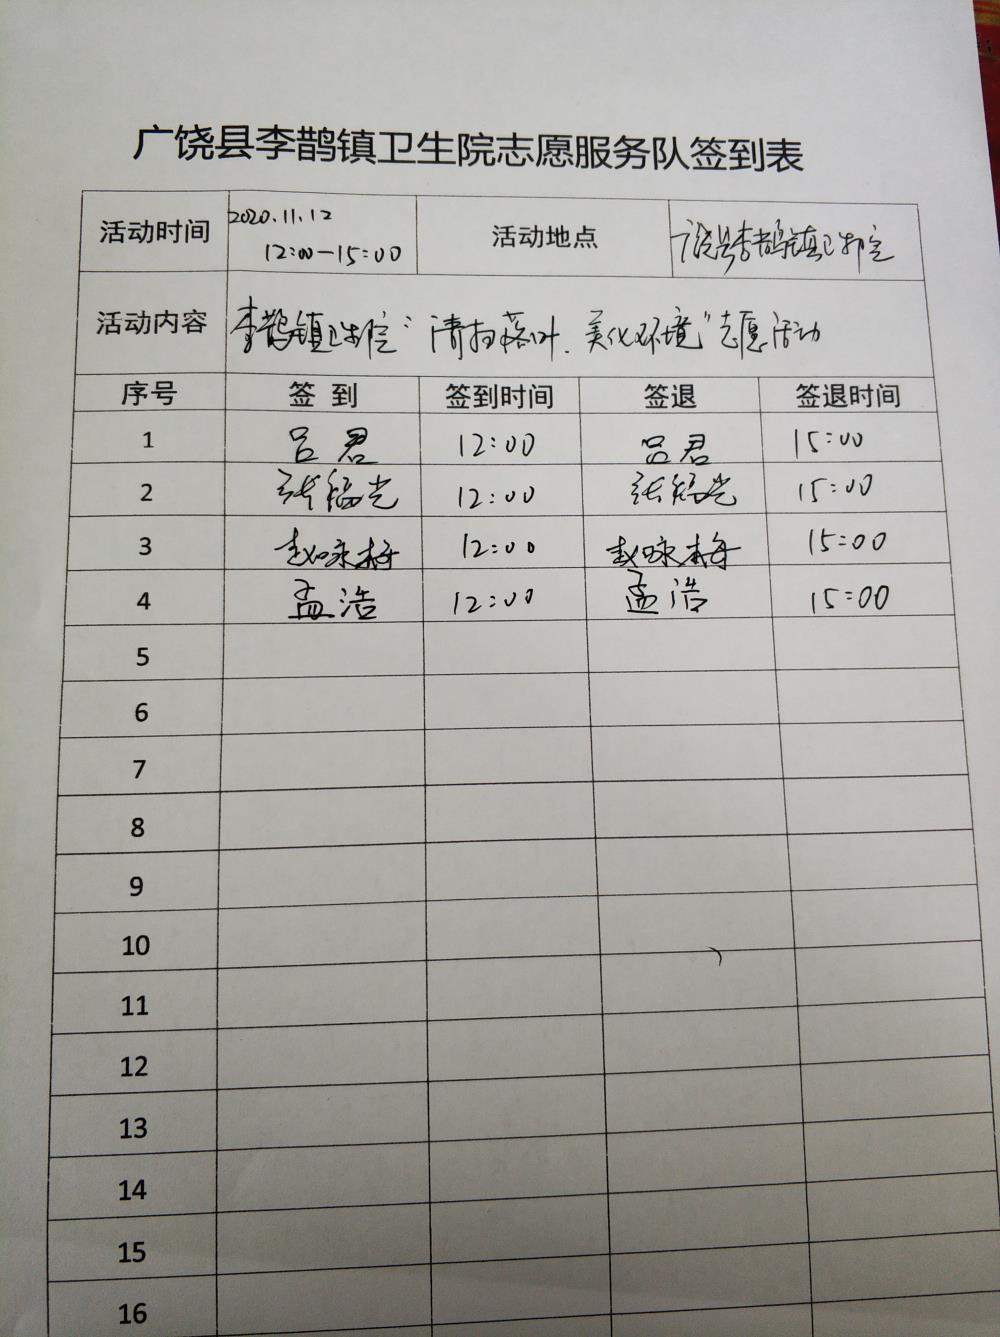 广饶县李鹊镇卫生院志愿服务队签到表
活动时间 2020.11.12 12:00-15:00 活动地点 广饶县李鹊镇卫生院
活动内容 李鹊镇卫生院"清扫落叶、美化环境"志愿活动
序号 签到 签到时间 签退 签退时间
1 吕君 12:00 吕君 15:00
2 张福光 12:00 张福光 15:00
3 赵咏梅 12:00 赵咏梅 15:00
4 孟浩 12:00 孟浩 15:00
5
6
7
8
9
10
11
12
13
14
15
16